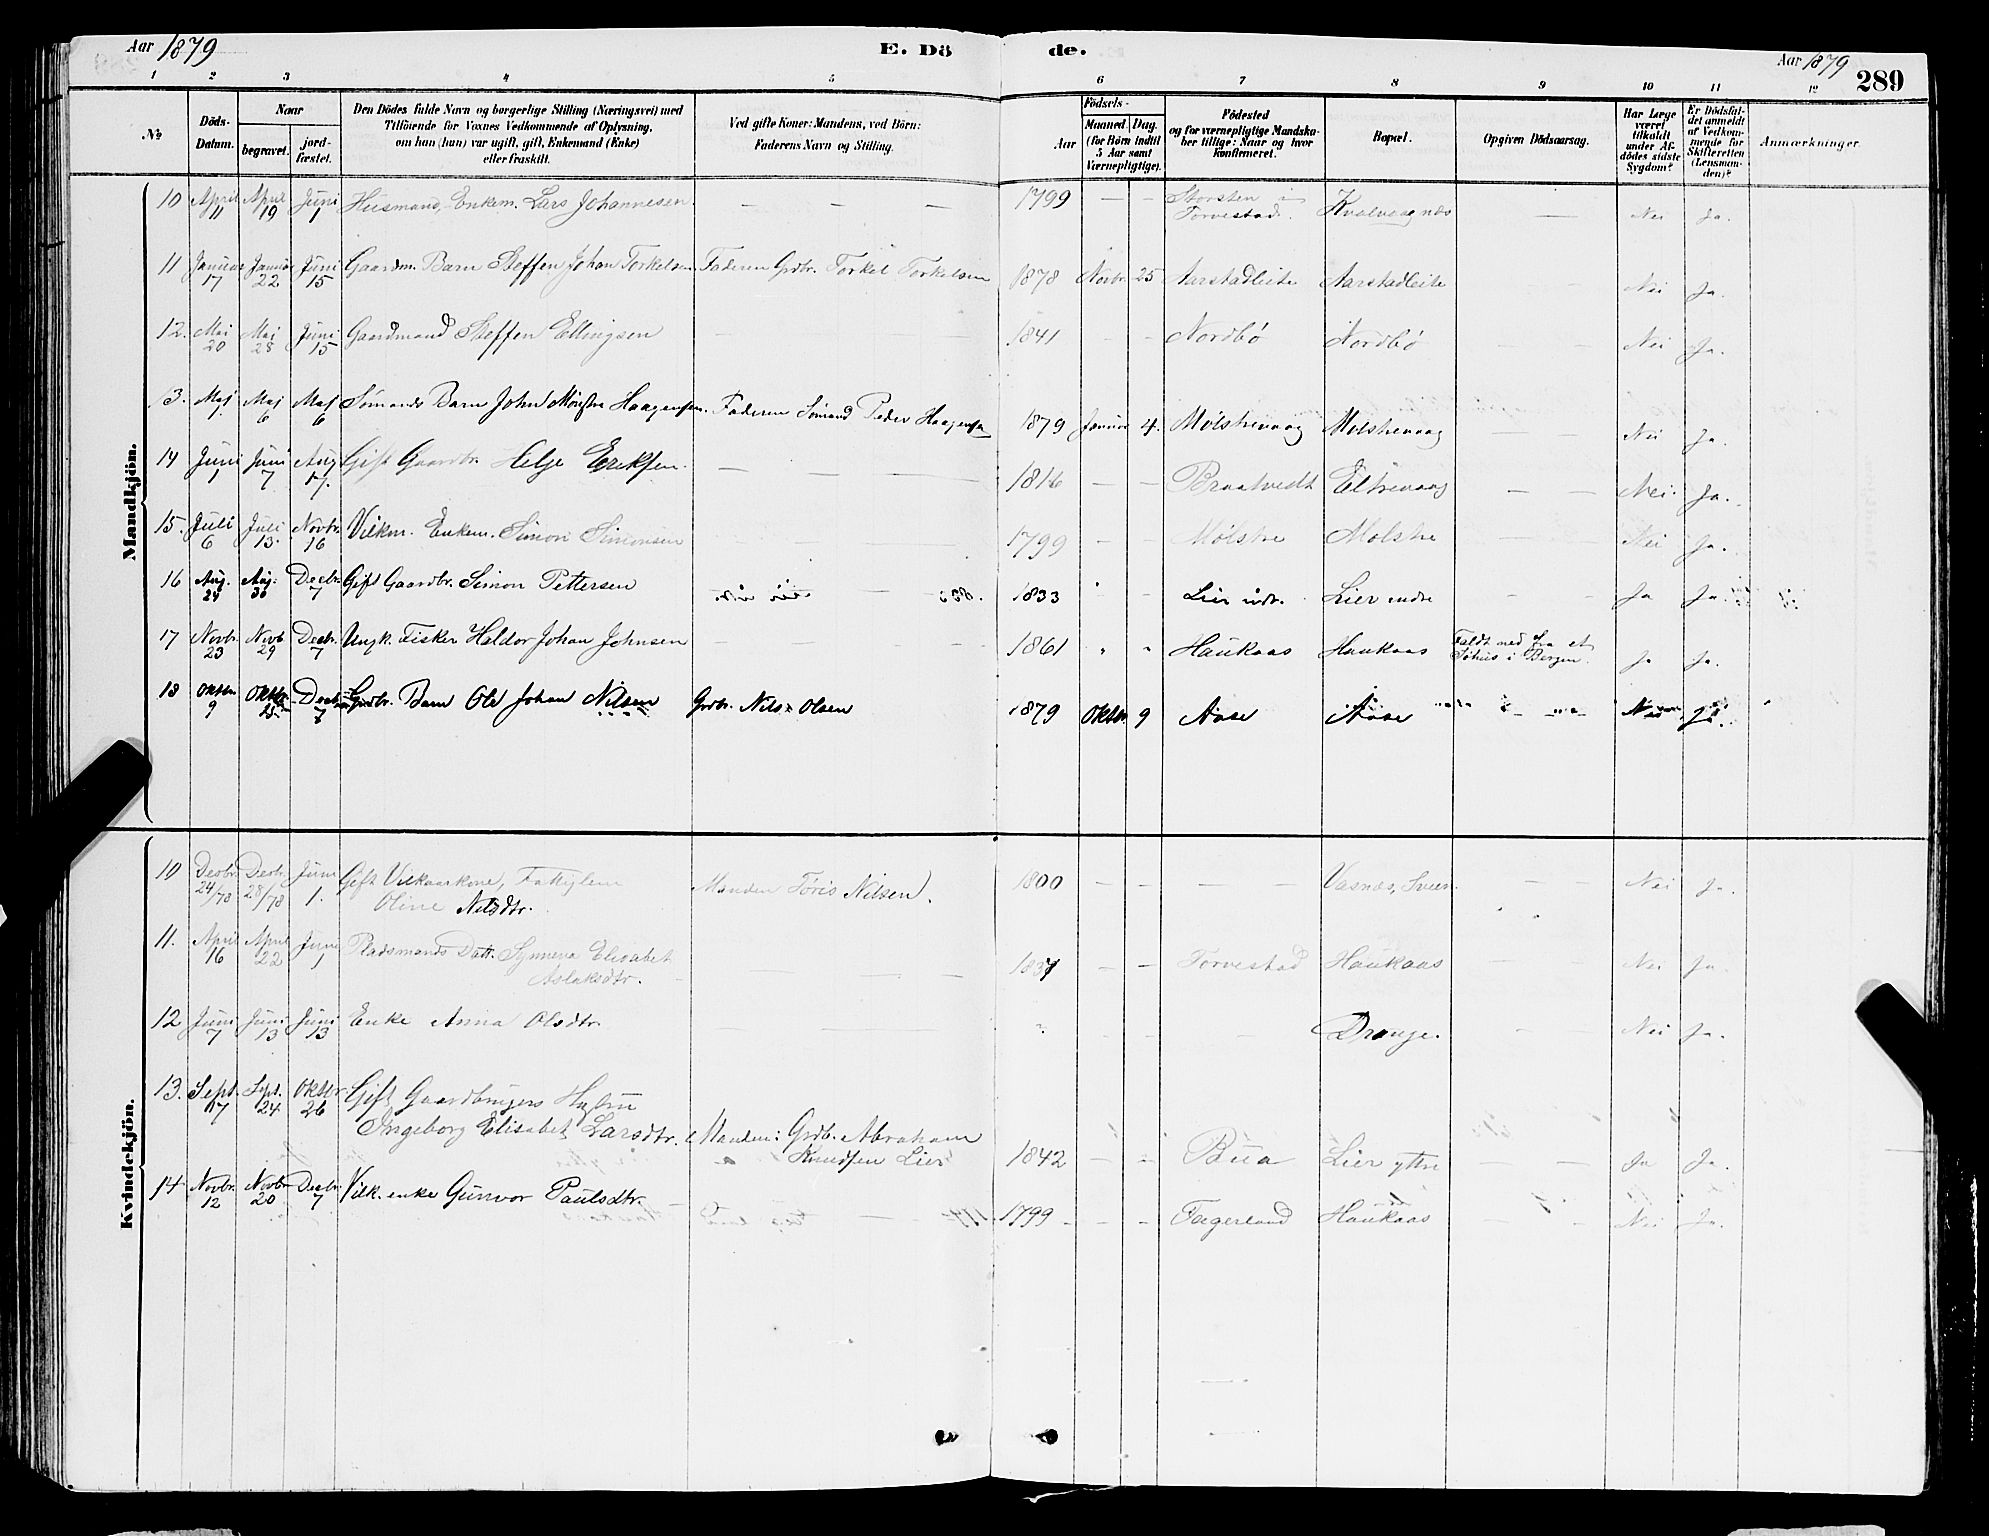 Aar 1879 E. Dö de. Aar 1879 289
1 2 3 4 5 6 7 8 9 10 11 12
No. Döds-Datum. Naar begravet. jord-fæstet. Den Dödes fulde Navn og borgerlige Stilling (Næringsvei) med Tilföiende for Voxnes Vedkommende af Oplysning, om han (hun) var ugift, gift, Enkemand (Enke) eller fraskilt. Ved gifte Koner: Mandens, ved Börn: Faderens Navn og Stilling. Födsels- Aar Maaned. Dag. (for Börn indtil 5 Aar samt Værnepligtige). Födested og for værnepligtige Mandska-ber tillige: Naar og hvor konfirmeret. Bopæl. Opgiven Dödsaarsag. Har Læge været tilkaldt under Af-dödes sidste Sygdom? Er Dödsfal-det anmeldt af Vedkom-mende for Skifteretten (Lensman-den)? Anmærkninger.
Mandkjön.
10 April 11 April 19 Juni 1 Husmand, Enkem. Lars Johannesen — — — 1799 — — Storsten i Torvestad. Kvalvaagnæs — Nei Ja.
11 Januar 17 Januar 22 Juni 15 Gaardm. Barn Steffen Johan Torkelsen Faderen Grdbr. Torkel Torkelsen 1878 Novbr. 25 Aarstadleite Aarstadleite — — Nei Ja.
12. Mai 20 Mai 28 Juni 15 Gaardmand Steffen Ellingsen — — — 1841 - - Nordbø Nordbø — — Nei Ja.
13. Maj 1 Maj 6 Maj 6 Sömands Barn John Haagensen. Faderen Sömand Peder Haagensen 1879 Januar 4. Mølstrevaag Mølstrevaag — — Nei Ja.
14 Juni 1 Juni 7 Aug 17. Gift Gaardbr. Helje Eriksen. — — — 1816 — — Braatvedt Eltrevaag — — Nei. Ja.
15. Juli 6 Juli 13. Novbr. 16 Vilkm. Enkem. Simon Simonsen — — — 1799 - - Mølstre Mølstre — — Nei Ja.
16 Aug. 24 Aug. 30 Decbr. 7 Gift Gaardbr. Simon Pettersen 1833 " - Lier indr. Lier indre - - Ja Ja.
17 Novbr. 23 Novb 29 Decbr. 7 Ungk. Fisker Haldor Johan Johnsen — — — 1861 " " Haukaas Haukaas Faldt ned fra et Søhus i Bergen. Ja Ja.
18 Oktbr. 9 Oktbr. 25 Decbr. 7 Grdbr. Barn Ole Johan Nilsen Grdbr. Nils Olsen 1879 Oktbr. 9 Aase Aase — — Nei Ja.
Kvindekjön.
10 Decbr. 24/78 Decbr. 28/78 Juni 1. Gift Vilkaarskone,
Oline Nilsdtr. Manden Töris Nilsen. 1800 — — — — Vasnæs, — Nei Ja.
11. April 16 April 22 Juni 1 Pladsmands Datt. Synneva Elisabet
Aslaksdtr. — — — 1837 — - Torvestad Haukaas — — Nei Ja.
12 Juni 7 Juni 13 Juni 13 Enke Anna Olsdtr. — — ? - - - Drange. — — Nei Ja.
13. Sept. 17 Sept. 24 Oktbr 26 Gift Gaardbrugers Hustru
Ingeborg Elisabet Larsdtr. Manden: Grdb. Abraham
Knudsen Lier 1842 — - Bua Lier ytre — — Ja Ja.
14 Novbr. 12 Novbr. 20 Decbr. 7 Vilk. enke Gunvor Paulsdtr. — — 1799 - - Fagerland Haukaas — — Nei Ja.